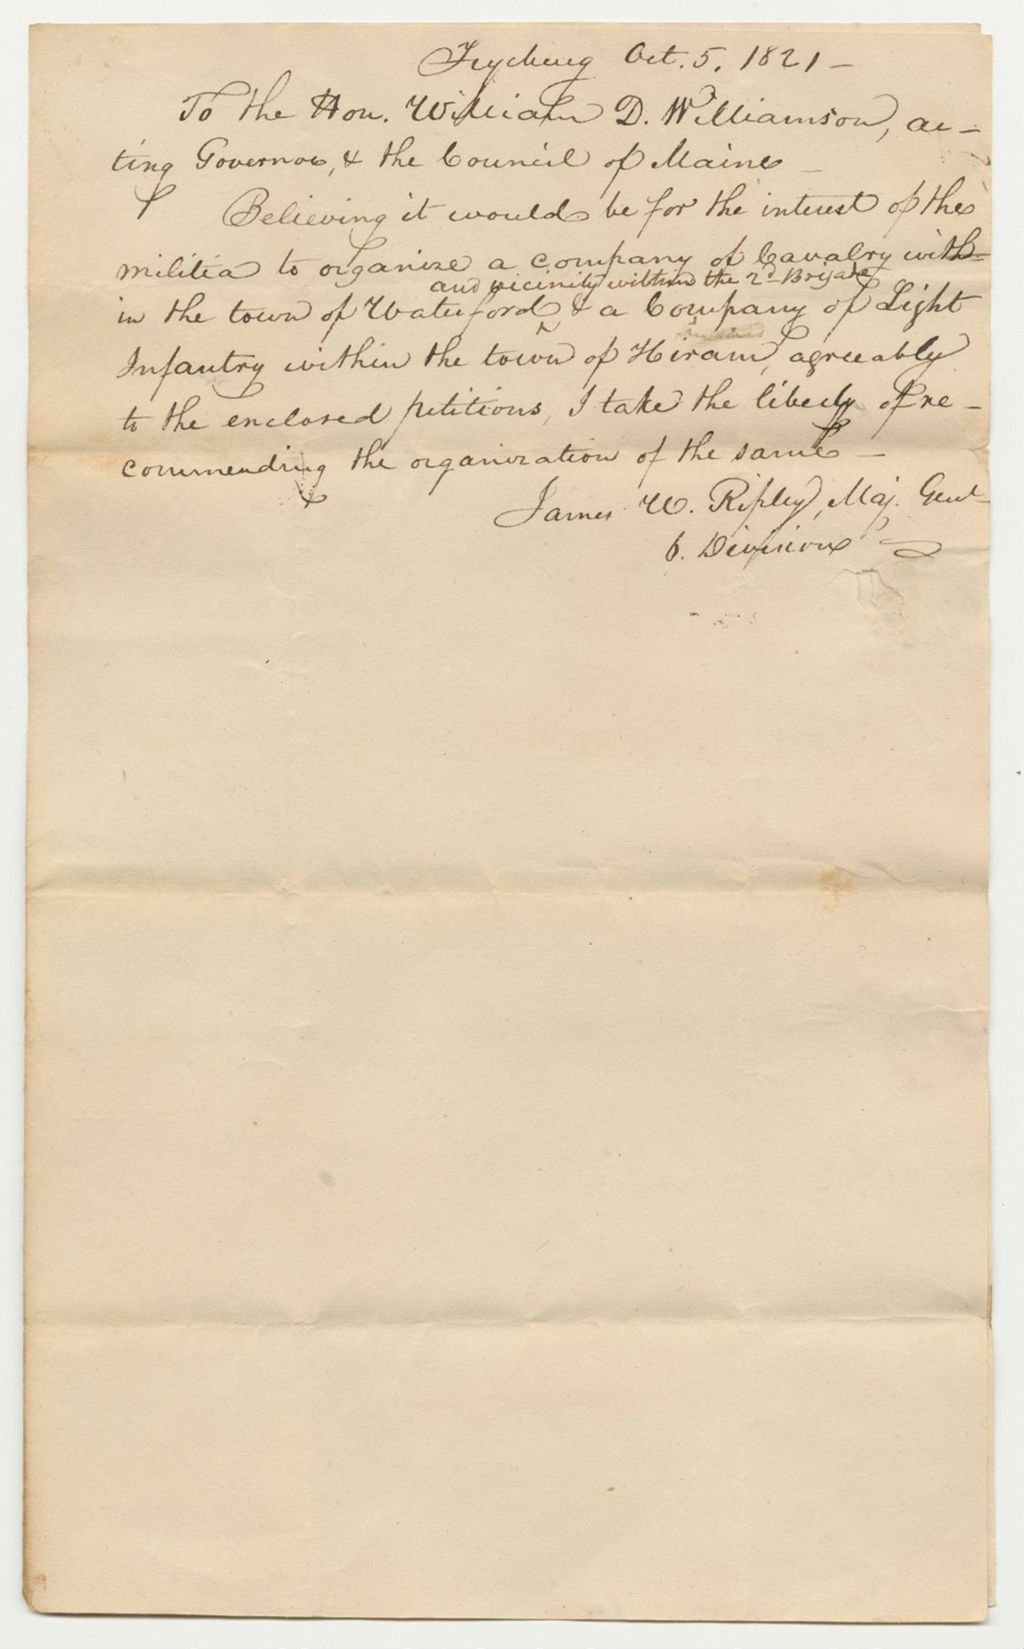 Fryeburg Oct. 5, 1821 –
To the Hon. William D. Williamson, ac–
ting Governor, & the Council of Maine –
Believing it would be for the interest of the
militia to organize a company of Cavalry with=
and vicinity within the 2d Brigade
in the town of Waterford ^ & a Company of Light
Infantry within the town of Hiram, agreeably
to the enclosed petitions, I take the liberty of re–
commending the organization of the same –
James W. Ripley, Maj. Genl
6. Division